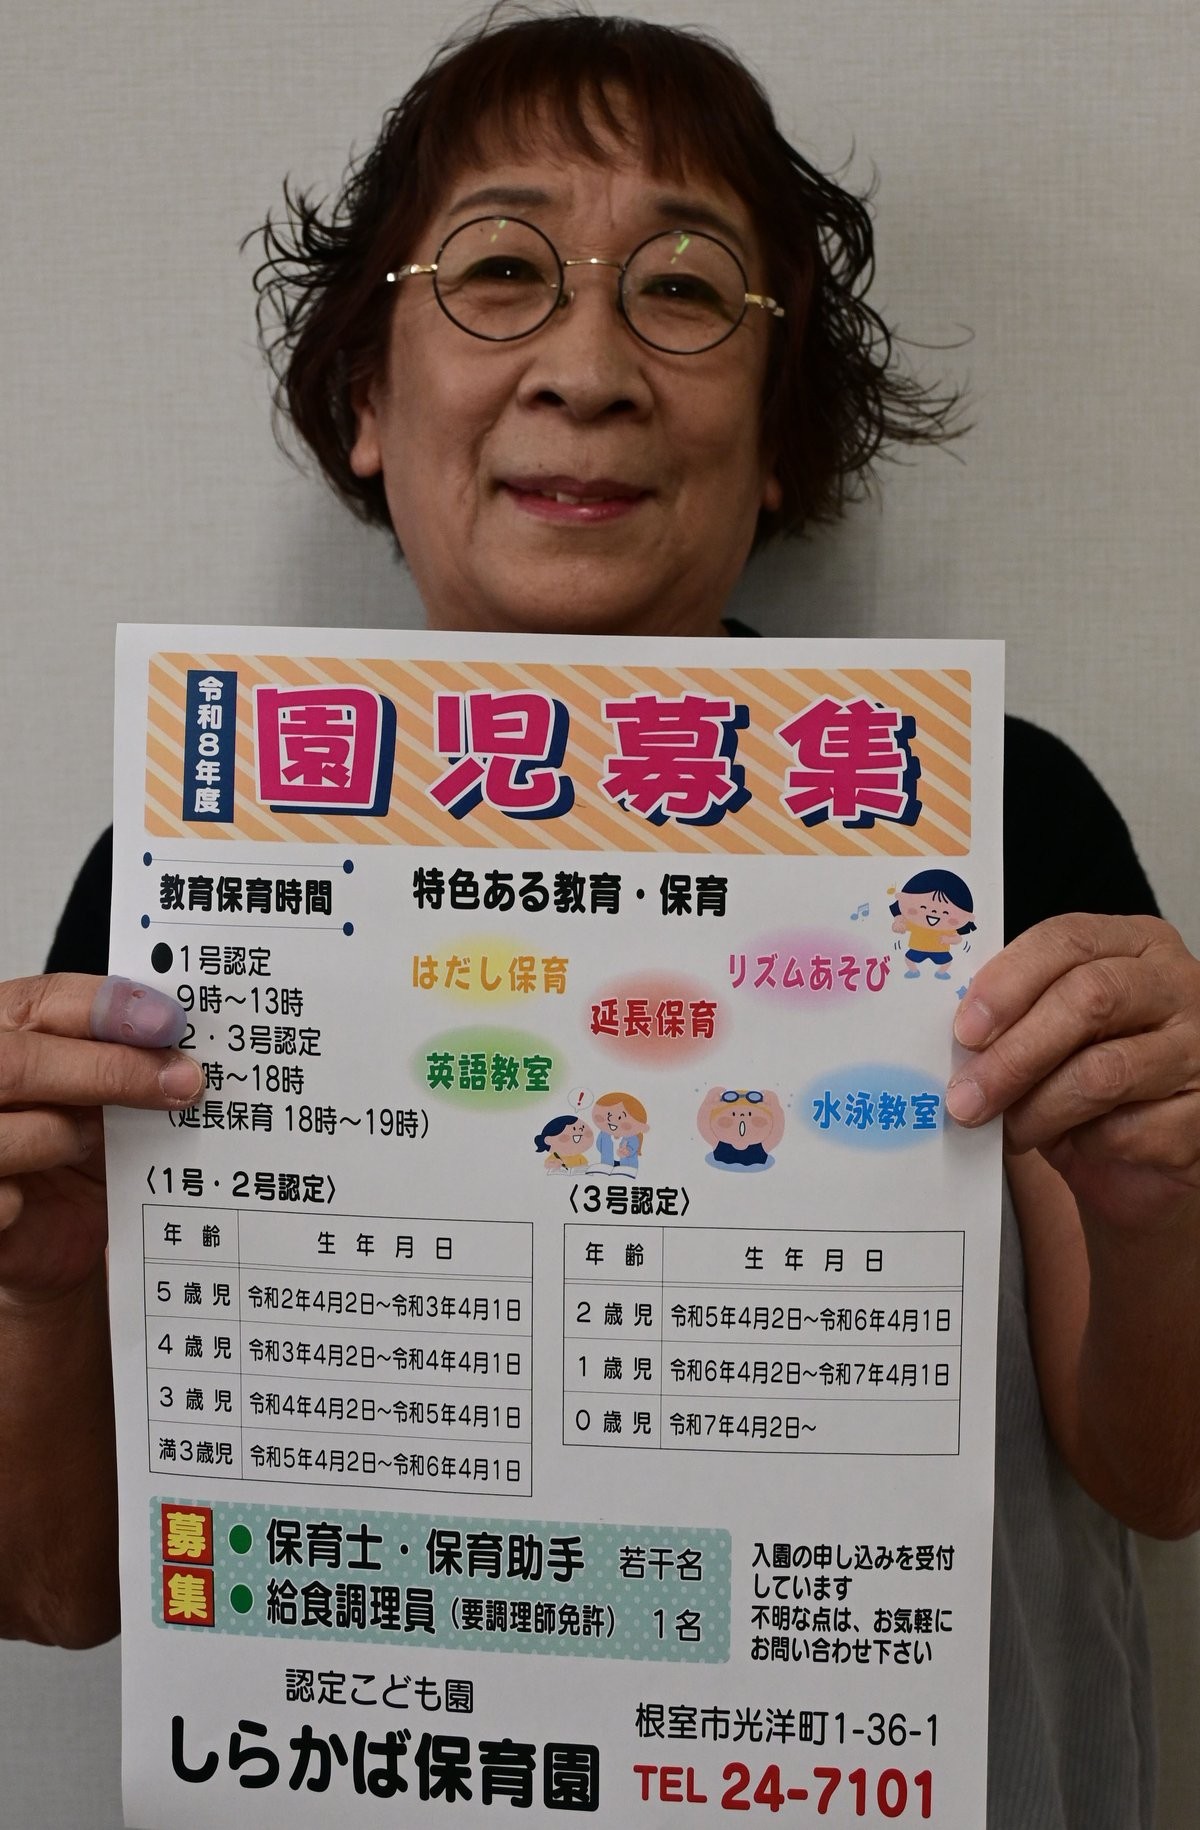 令和8年度
園児募集
教育保育時間
●1号認定
9時～13時
2・3号認定
時～18時
(延長保育 18時～19時)
特色ある教育・保育
はだし保育
リズムあそび
延長保育
英語教室
水泳教室
!
〈1号・2号認定〉
年齢 生年月日
5歳児 令和2年4月2日～令和3年4月1日
4歳児 令和3年4月2日～令和4年4月1日
3歳児 令和4年4月2日～令和5年4月1日
満3歳児 令和5年4月2日～令和6年4月1日
〈3号認定〉
年齢 生年月日
2歳児 令和5年4月2日～令和6年4月1日
1歳児 令和6年4月2日～令和7年4月1日
0歳児 令和7年4月2日～
募集
●保育士・保育助手 若干名
●給食調理員(要調理師免許) 1名
入園の申し込みを受付
しています
不明な点は、お気軽に
お問い合わせ下さい
認定こども園
しらかば保育園
根室市光洋町1-36-1
TEL 24-7101